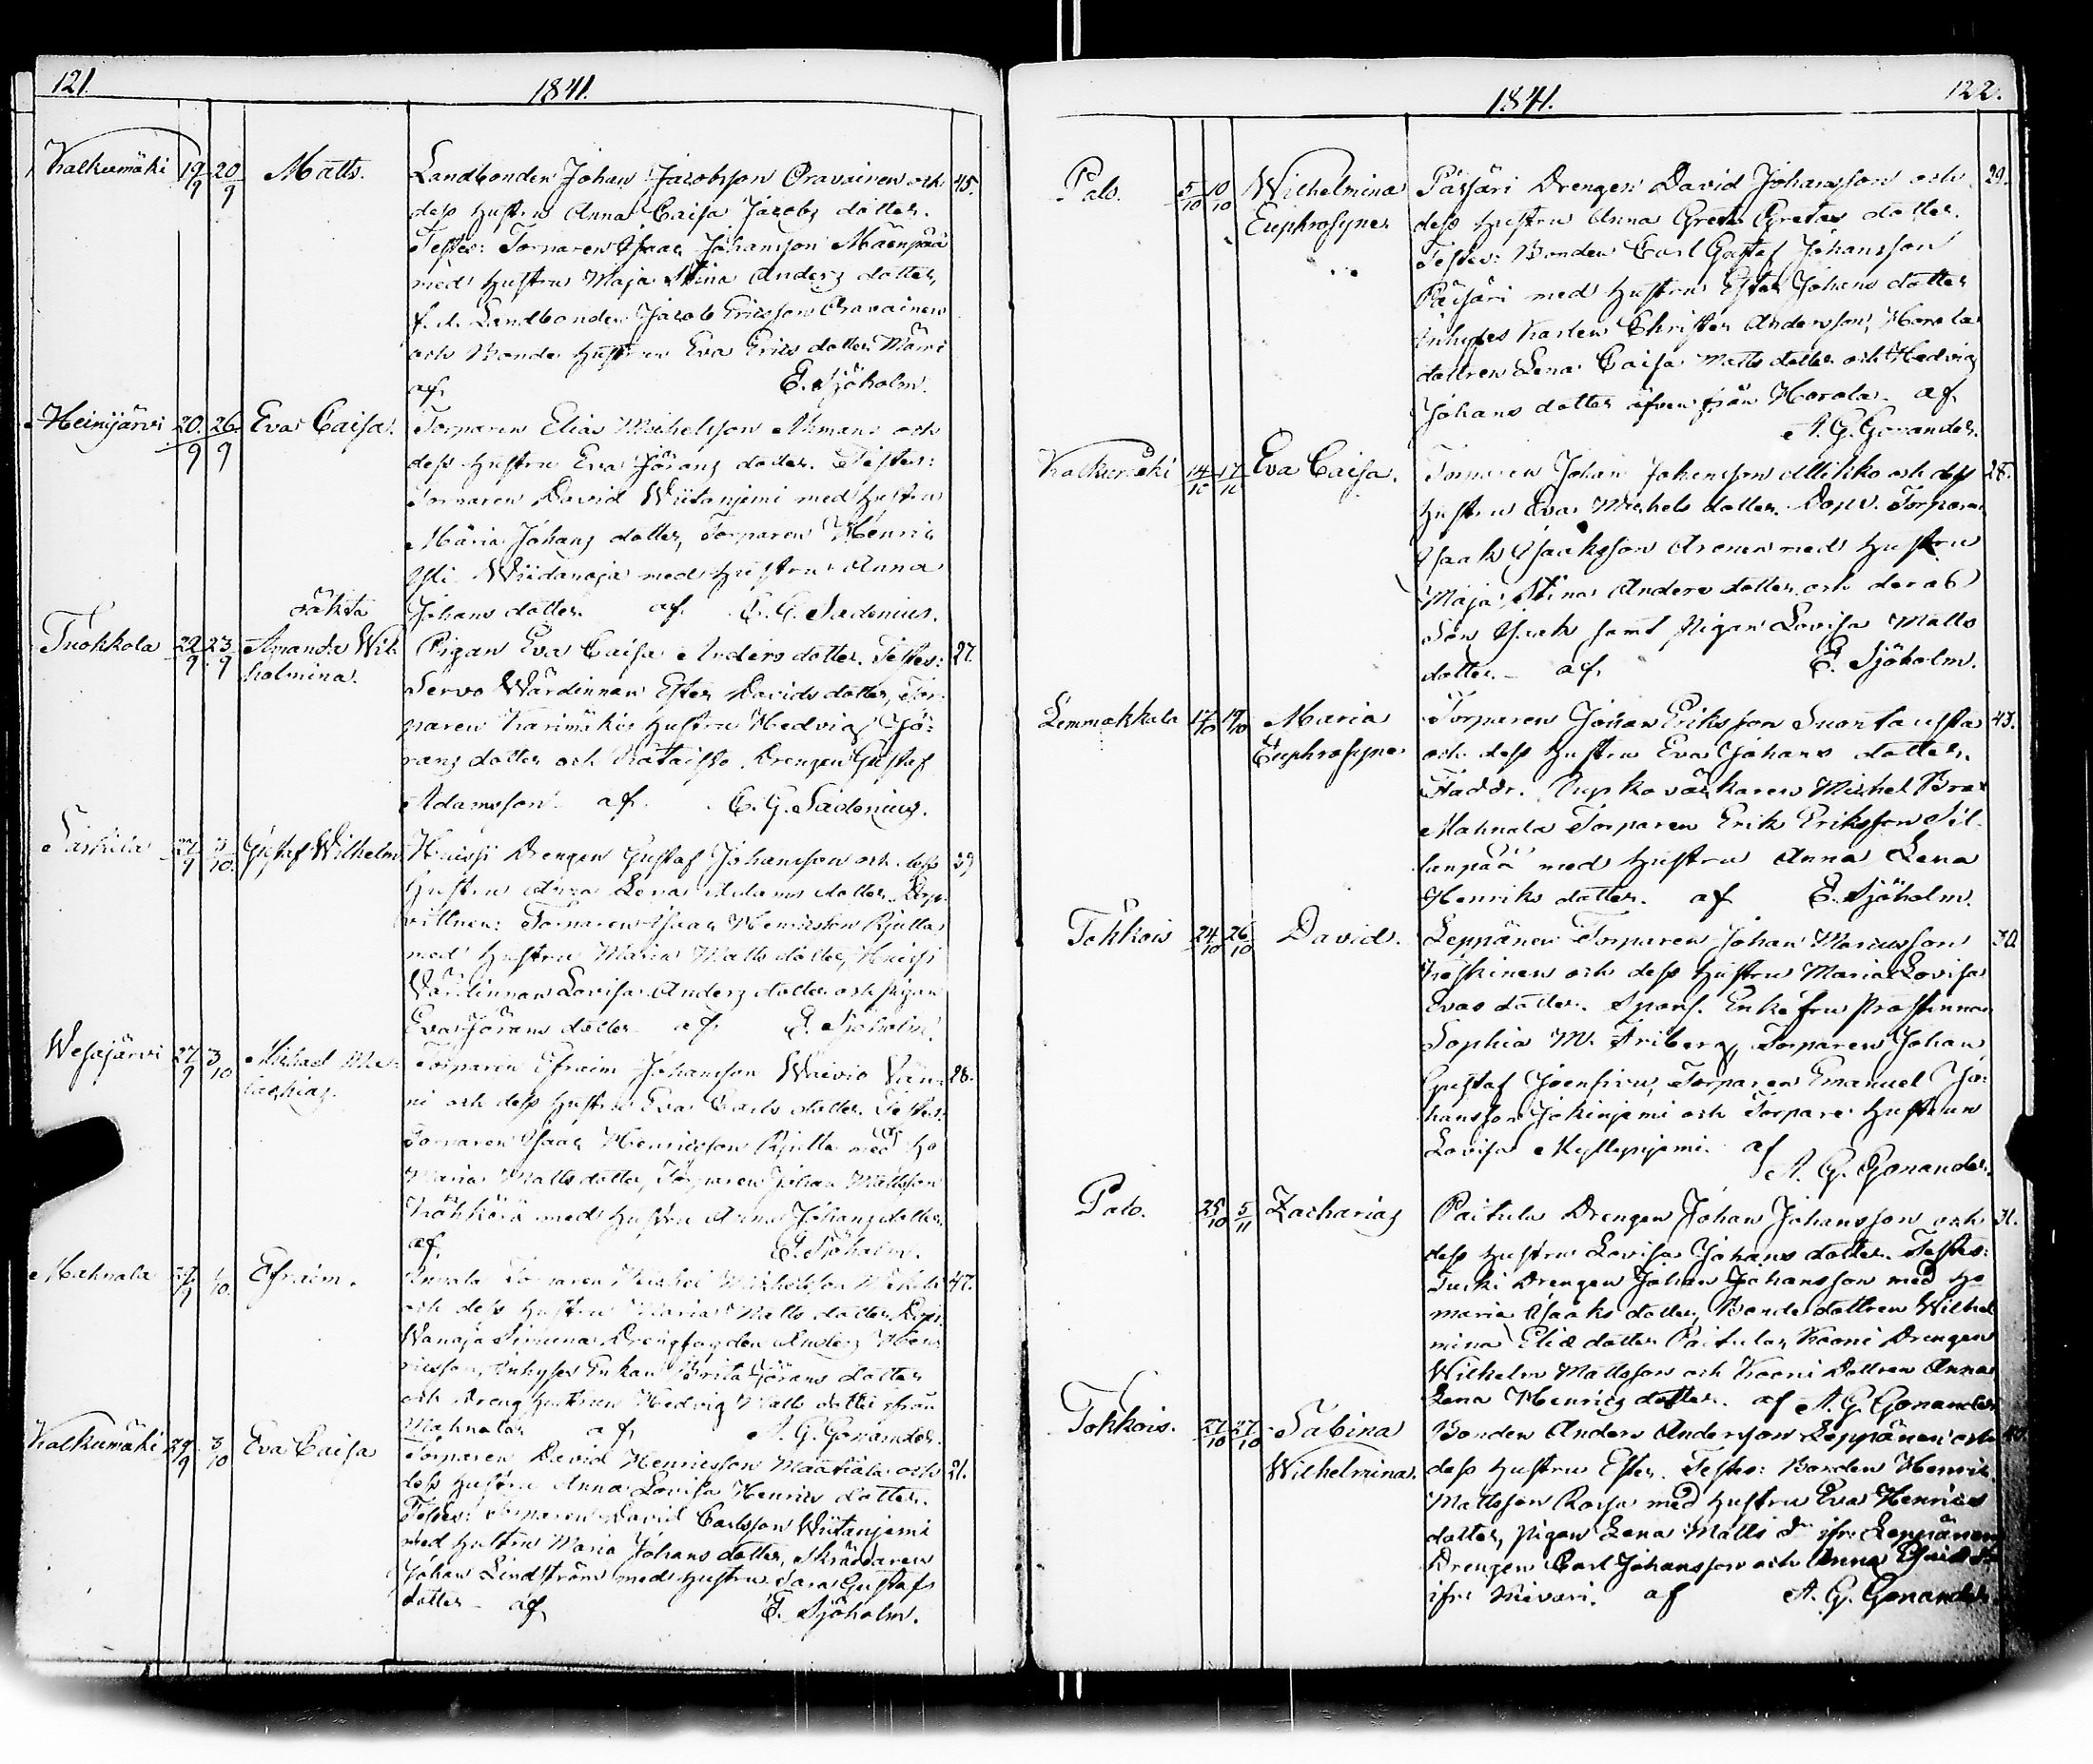 121.
1841.
Kalkumäki 19/9 20/9 Matts. Landbonden Johan Jacobsson Oravainen och 45.
dess hustru Anna Caisa Jacobs dotter.
Testes: Torparen Isaac Johansson Mäenpää
med hustru Maja Stina Anders dotter,
f. d. Landbonden Jacob Ericsson Oravainen
och Bonde hustrun Eva Erics dotter
af E. Sjöholm.
Heinijärvi 20/9 26/9 Eva Caisa. Torparen Elias Michelsson och
dess hustru Eva Jörans dotter. Testes:
Torparen David Wiitaniemi med hustru
Maria Johans dotter, Torparen Henric
Wiidanoja med hustru Anna
Johans dotter. af C. G. Sadenius.
oäkta
Tuokkola 22/9 23/9 Amanda Wil- Pigan Eva Caisa Anders dotter. Testes: 27.
helmina. Servo Wärdinnan Ester Davids dotter, Tor-
paren Karimäkis hustru Hedvig Jö-
rans dotter och Drengen Gustaf
Adamsson. af C. G. Sadenius.
27/9 3/10 Gustaf Wilhelm Huissi Drengen Gustaf Johansson och dess 29
hustru Anna Lena Adams dotter. Dop-
vittnen: Torparen Isaac Henricsson Rjutta
med hustru Maria Matts dotter, Huissi
Wärdinnan Lovisa Anders dotter och pigan
Eva Jörans dotter af E. Sjöholm.
Wesajärvi 27/9 3/10 Michael Ma- Torparen Efraim Johansson Waivio 28.
lachias. och dess hustru Eva Carls dotter. Testes:
Torparen Isaac Henricsson Rjutta med Ho
Maria Matts dotter, Torparen Johan Mattsson
Köhkörä med hustru Anna Johans dotter.
af E. Sjöholm.
Mahnala Efraim. Torparen Michel Michelsson 47.
och dess hustru Maria Matts dotter. Dopv.
Wanaja Simuna Drengen Anders Hen-
ricsson, Inhyses Enkan Brita Görans dotter
och Dreng hustrun Hedvig Matts dotter ifrån
Mahnala. af A. G. Gonander.
Kalkumäki 29/9 3/10 Eva Caisa Torparen David Henricsson Maatiala och 21.
dess hustru Anna Lovisa Henrics dotter.
Testes: Torparen David Carlsson Wiitaniemi
med hustru Maria Johans dotter, Skräddaren
Johan Lindström med hustru Sara Gustafs
dotter af E. Sjöholm.
1841.
122.
Palo. 5/10 10/10 Wilhelmina Päisäri Drengen David Johansson och 29.
Euphrosyne. dess hustru Anna Greta Gretas dotter.
Testes: Bonden Carl Gustaf Johansson
Päisäri med hustru Ester Johans dotter
Inhyses Karlen Christer Andersson, Horola
dottren Lena Caisa Matts dotter och Hedvig
Johans dotter äfven från Horola. af
A. G. Gonander.
Kalkumäki 14/10 17/10 Eva Caisa. Torparen Johan Johansson Mikko och dess 28.
hustru Eva Michels dotter. Dopv. Torparen
Isaak Isaaksson Aronen med hustru
Maja Stina Anders dotter och deras
Son Isaak samt Pigan Lovisa Matts
dotter. af E. Sjöholm.
Lemmakkala 17/10 19/10 Maria Torparen Johan Eriksson Suontausta 43.
Euphrosyne och dess hustru Eva Johans dotter.
Faddr. Michel
Mahnala Torparen Erik Eriksson Sil-
lanpää med hustru Anna Lena
Henriks dotter. af E. Sjöholm.
Tokkois 24/10 26/10 David. Leppänen Torparen Johan Mariusson 30.
Koskinen och dess hustru Maria Lovisa
Evas dotter. Spons. Enke fru Prostinnan
Sophia M. Friberg, Torparen Johan
Gustaf Joensivu, Torparen Emanuel Jo-
hansson Jokiniemi och Torpare hustrun
Lovisa Myllyniemi. af
A. G. Gonander.
Palo. 25/10 5/11 Zacharias Paitula Drengen Johan Johansson och 31.
dess hustru Lovisa Johans dotter. Testes:
Turki Drengen Johan Johansson med Ho
Maria Isaaks dotter, Bonde dottren Wilhel-
mina Eliæ dotter Paitula, Kooni Drengen
Wilhelm Mattsson och Kooni Dottren Anna
Lena Henrics dotter. af A. G. Gonander
Tokkois. 27/10 27/10 Sabina Bonden Anders Andersson Leppänen och
Wilhelmina. dess hustru Ester. Testes: Bonden Henric
Mattsson Rossa med hustru Eva Henrics
dotter, Pigan Lena Matts dr ifr: Leppänen
Drengen Carl Johansson och Anna
ifr: Kivari. af A. G. Gonander